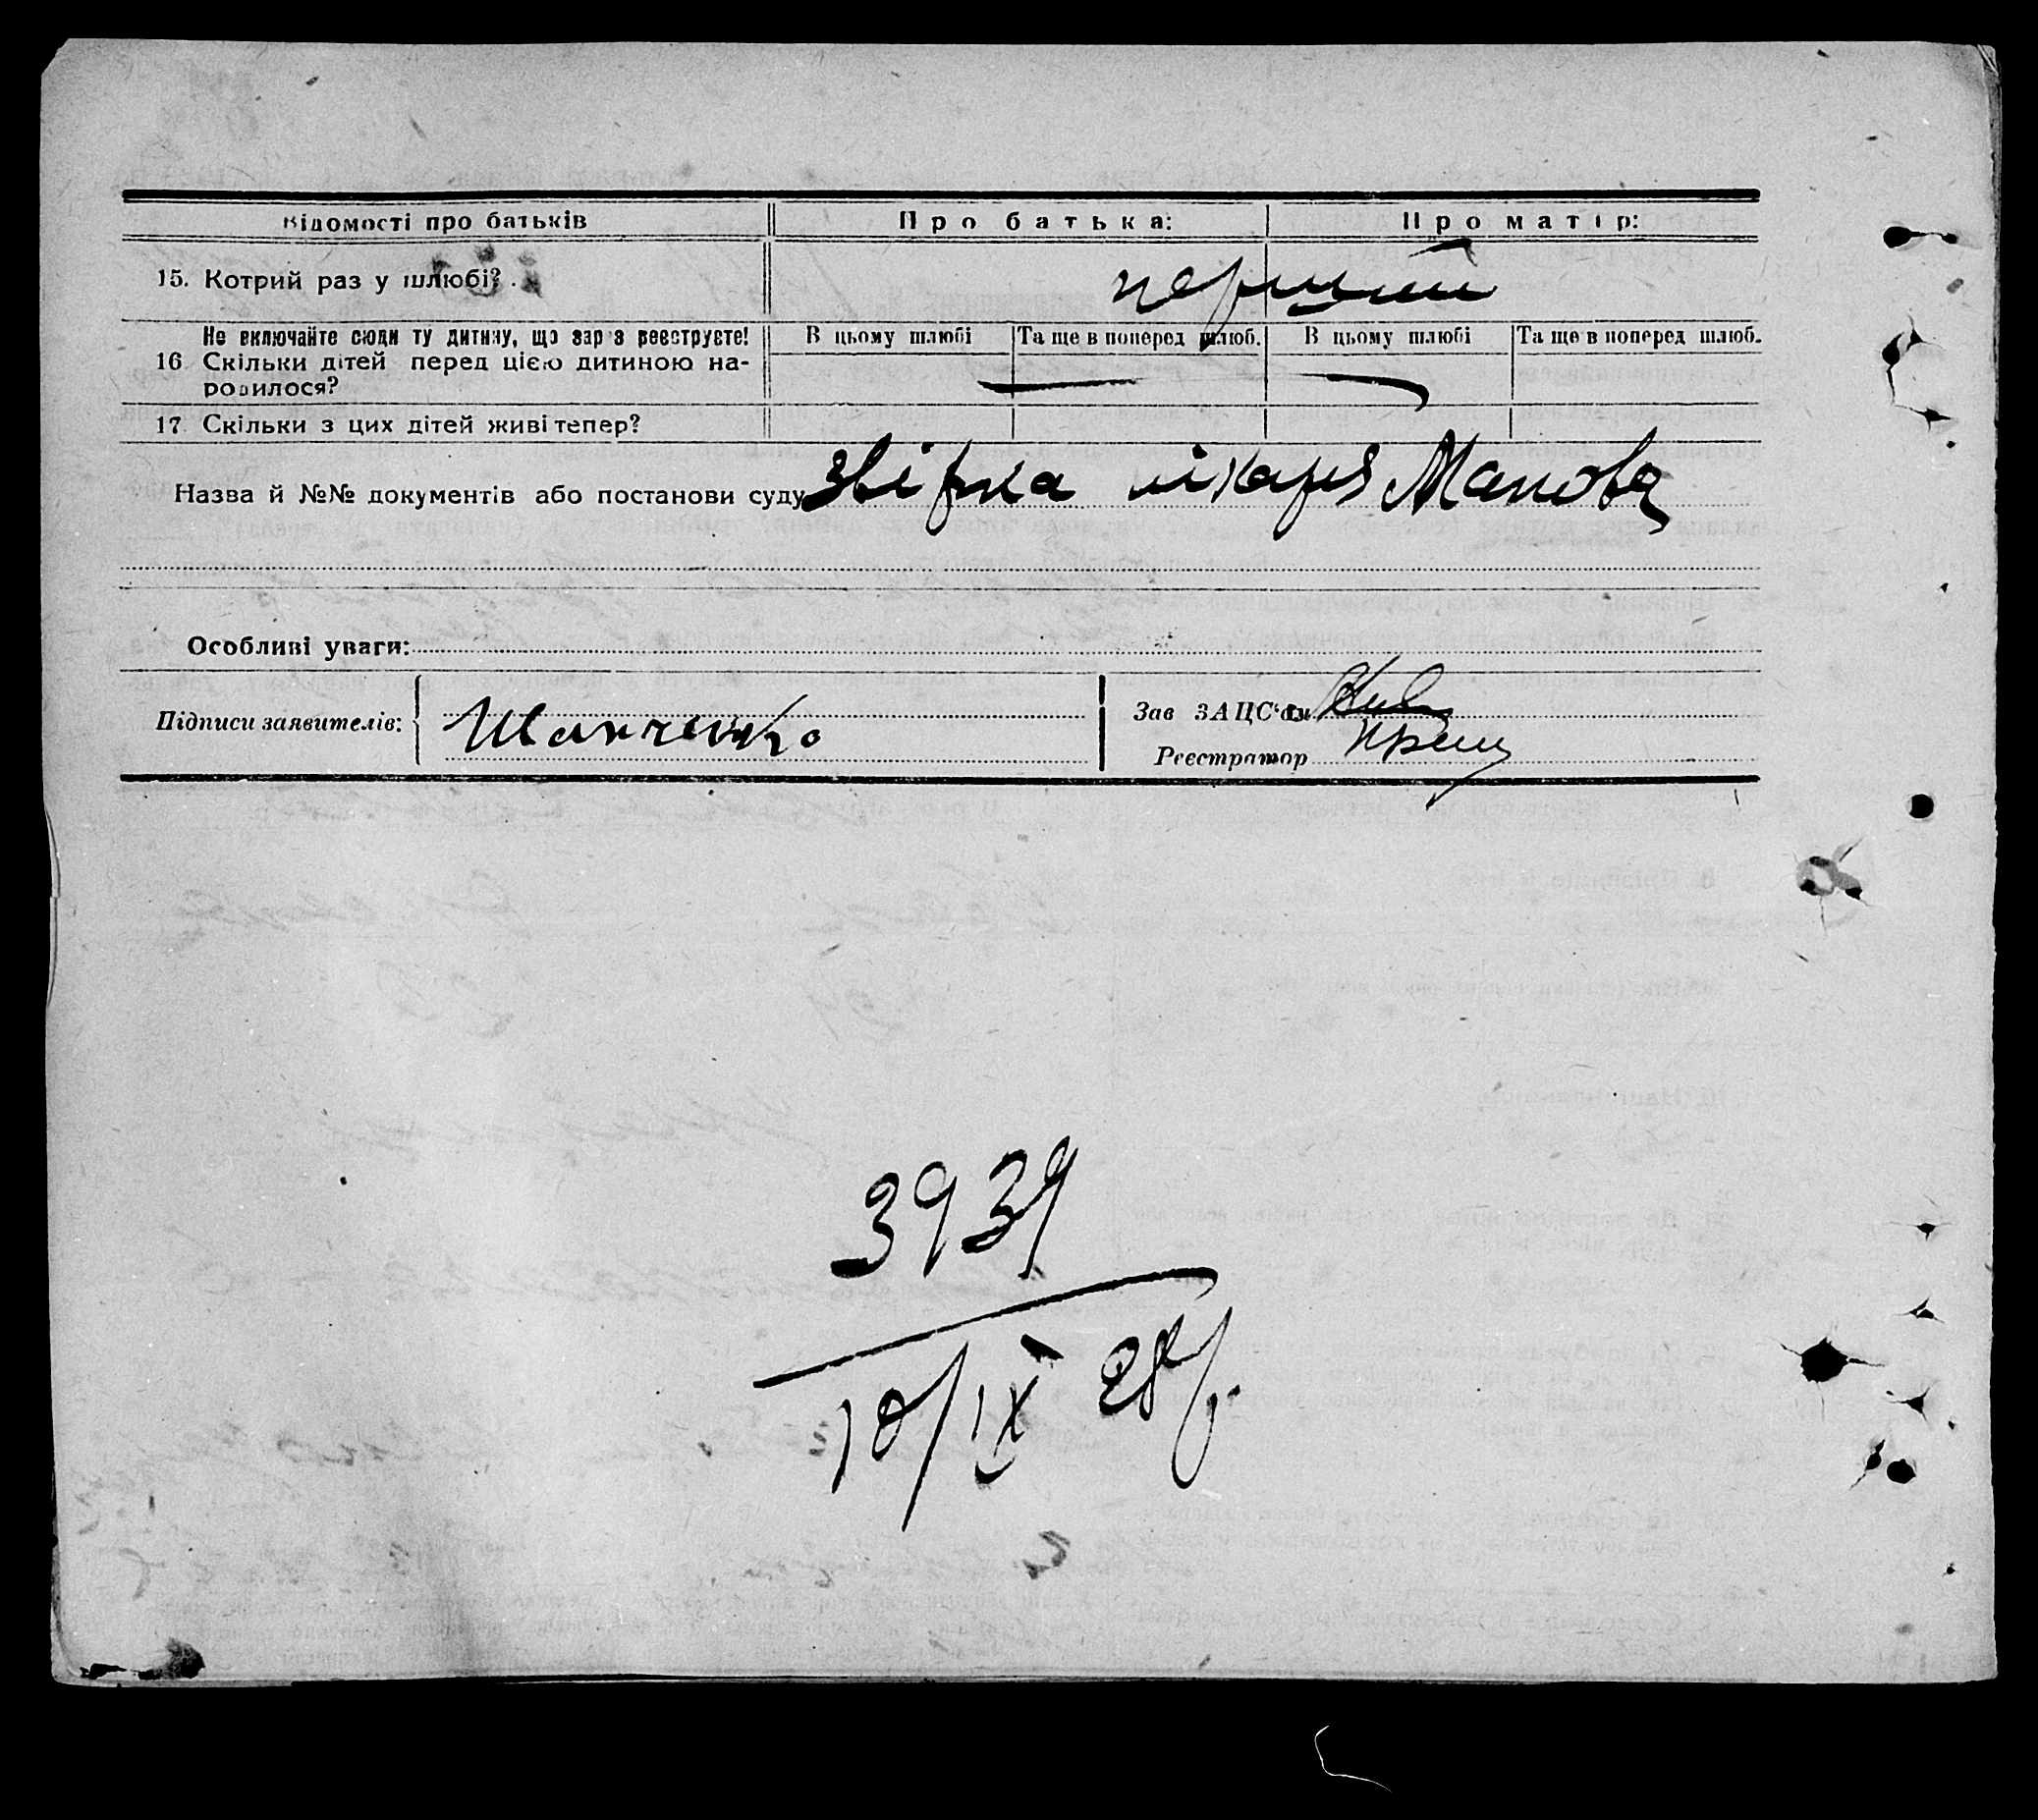 Відомості про батьків
Про батька:
Про матір:
15. Котрий раз у шлюбі?
перший
Не включайте сюди ту дитину, що зараз реєструєте!
В цьому шлюбі
Та ще в поперед шлюб.
В цьому шлюбі
Та ще в поперед шлюб.
16 Скільки дітей перед цією дитиною на-
родилося?
17 Скільки з цих дітей живі тепер?
Назва й №№ документів або постанови суду звірка лікаря
Особливі уваги:
Підписи заявителів:
Зав ЗАЦС'ом
Реєстратор
3939
10/IX 28 р.